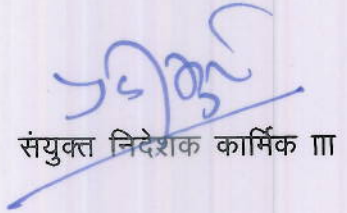 संयुक्त निदेशक कार्मिक III